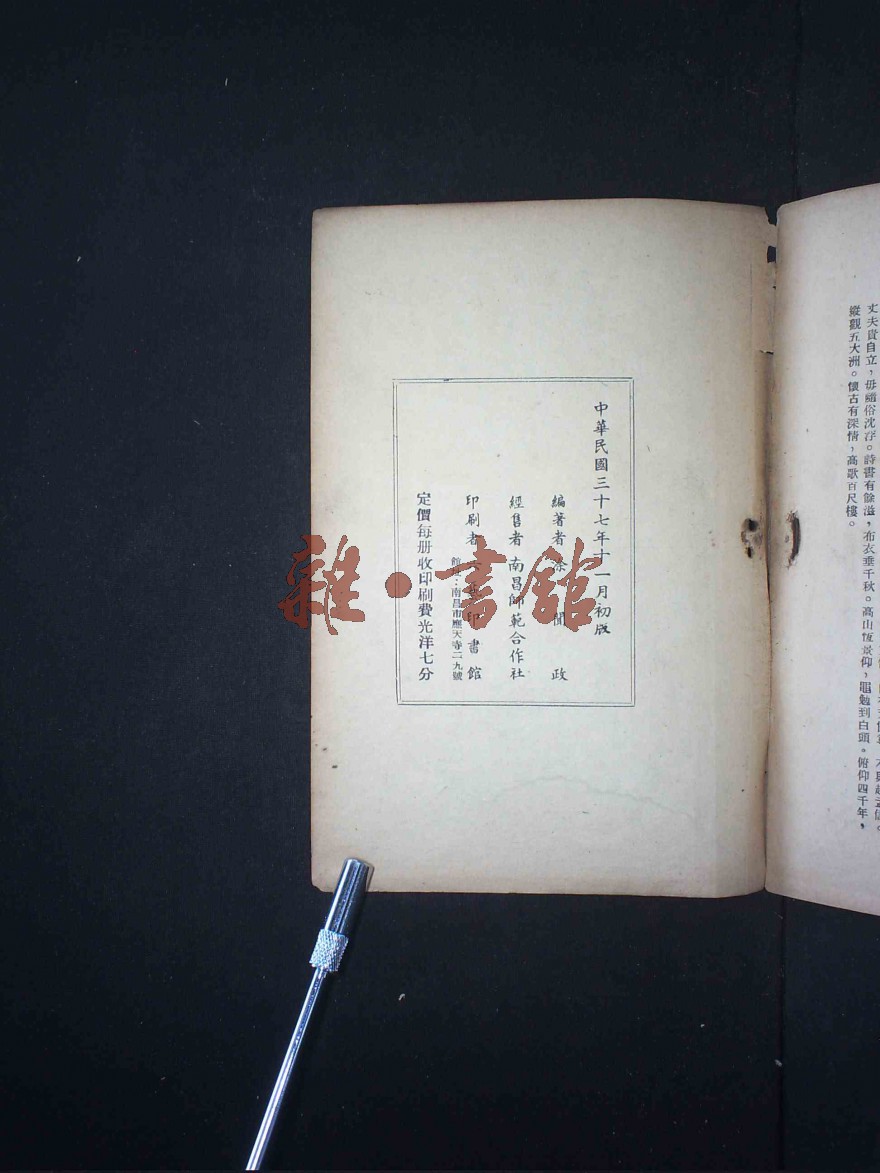 丈夫貴自立，毋隨俗沈浮。詩書有餘溢，布衣垂千秋。高山恆景仰，黽勉到白頭。俯仰四千年，
縱觀五大洲。懷古有深情，高歌百尺樓。
中華民國三十七年十一月初版
編著者 聞政
經售者 南昌師範合作社
印刷者 印書館
館址：南昌市應天寺二九號
定價每册收印刷費光洋七分
雜·書館